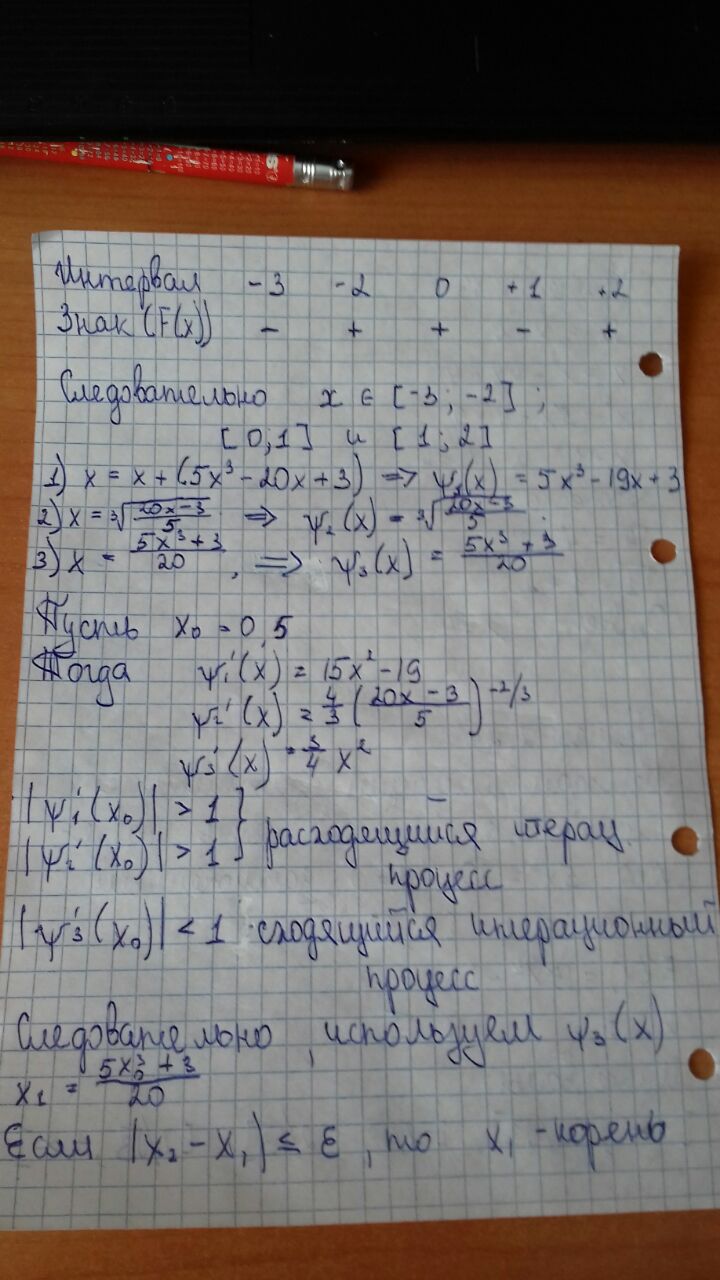 Интервал -3 -2 0 +1 +2
Знак (F(x)) - + + - +
Следовательно x ∈ [-3; -2];
[0;1] и [1;2]
1) x = x + (5x³ - 20x + 3) => ψ₁(x) = 5x³ - 19x + 3
2) x = ∛((20x-3)/5) => ψ₂(x) = ∛((20x-3)/5)
3) x = (5x³+3)/20, => ψ₃(x) = (5x³+3)/20
Пусть x₀ = 0,5
Тогда ψ₁'(x) = 15x² - 19
ψ₂'(x) = 4/3 ((20x-3)/5)^(-2/3)
ψ₃'(x) = 3/4 x²
|ψ₁'(x₀)| > 1
|ψ₂'(x₀)| > 1 } расходящийся итерац.
процесс
|ψ₃'(x₀)| < 1 сходящийся итерационный
процесс
Следовательно, используем ψ₃(x)
x₁ = (5x₀³+3)/20
Если |x₂ - x₁| ≤ ε, то x₁ - корень